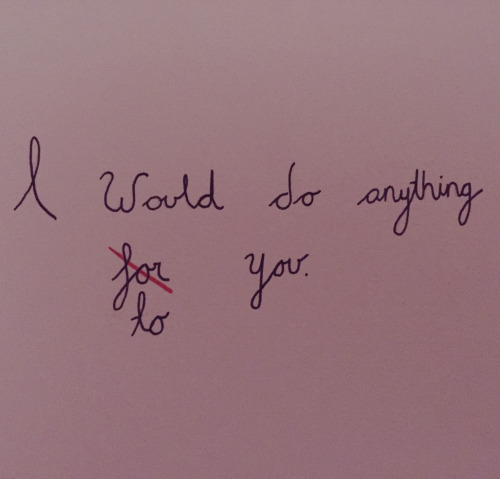 I Would do anything
for you.
to